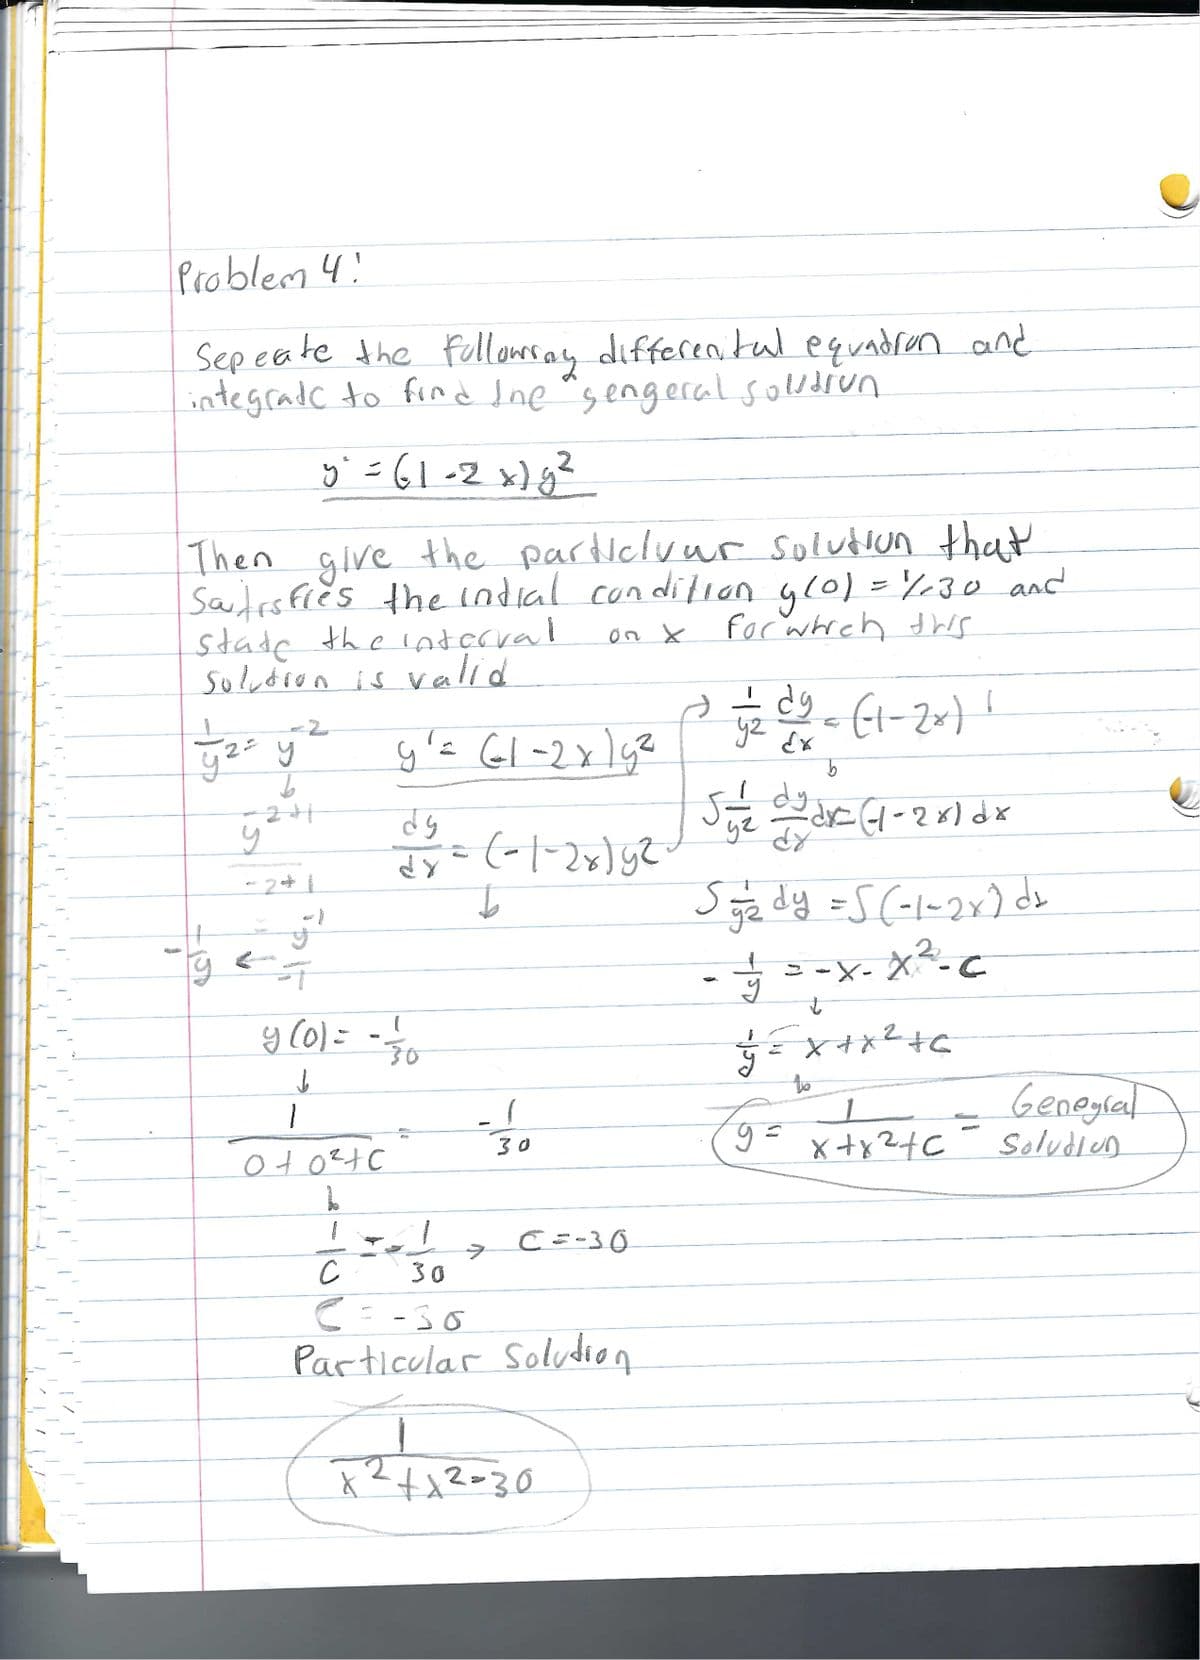 Problem 4:
Sepeate the followray differental equadron and
integradc to find Ine "gengeral soludrun
y' = (-1 -2 x) y²
Then give the particluar solution that
Satrsfies the indial condition y(0) = 1/-30 and
stadc the intcrval on x for whrch thrs
solution is valid
1/y² = y⁻²
y⁻²⁺¹
-2+1
= y⁻¹/-1
-1/y ←
y' = (-1 -2x)y²
dy/dx = (-1-2x)y²
→ 1/y² dy/dx = (-1-2x) 1
∫ 1/y² dy/dx dx = (-1-2x) dx
∫ 1/y² dy = ∫ (-1-2x) dx
- 1/y = -x - x² - c
1/y = x + x² + c
y = 1/(x + x² + C) = Genegral
Soludiun
y(0) = -1/30
↓
1/(0 + 0² + C) = -1/30
1/C = -1/30 → C = -30
C = -30
Particular Soludion
1/(x² + x² - 30)